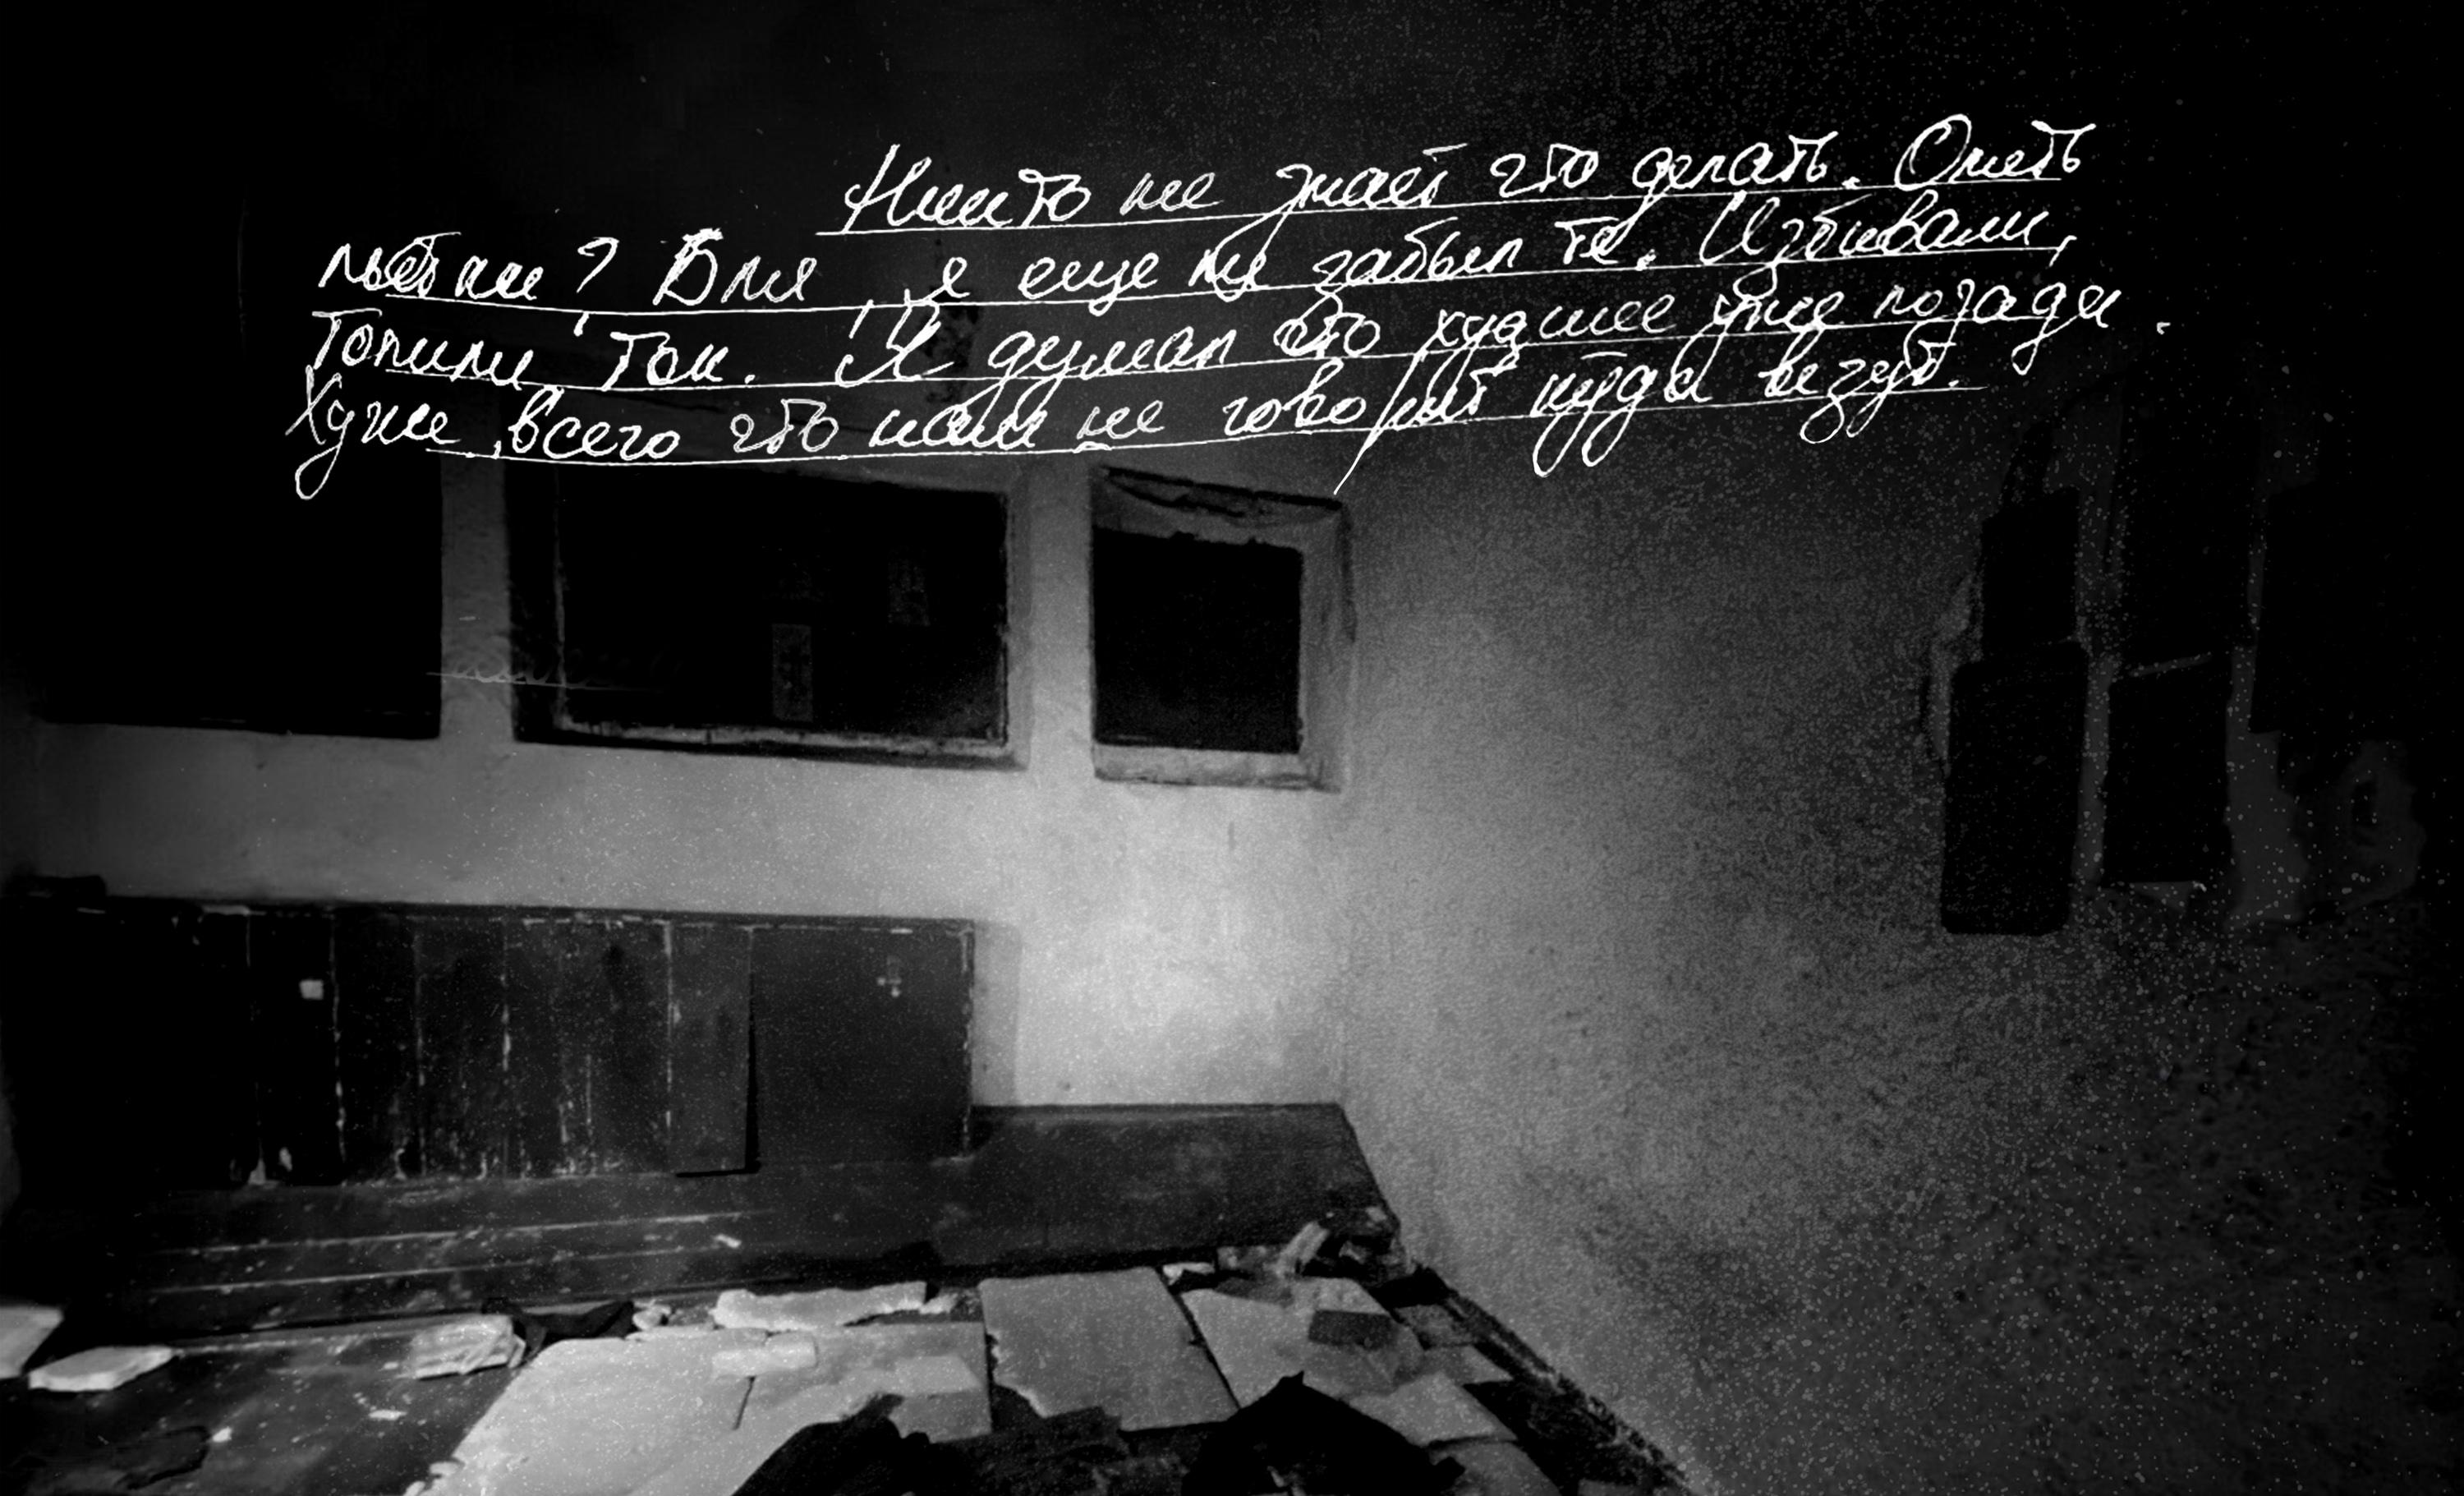 Никто не знает что делать. Опять
пытки? Бля, я еще не забыл те. Избивали,
топили, ток. Я думал что худшее уже позади.
Хуже всего что нам не говорят куда везут.